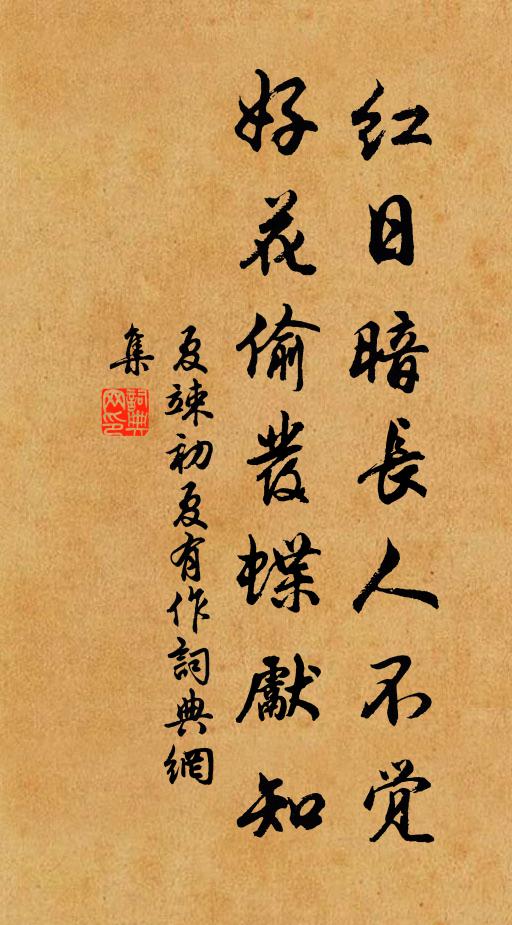 红日暗長人不觉
好花偷發蝶獻知
夏竦初夏有作詞典網
集
詞典
网印